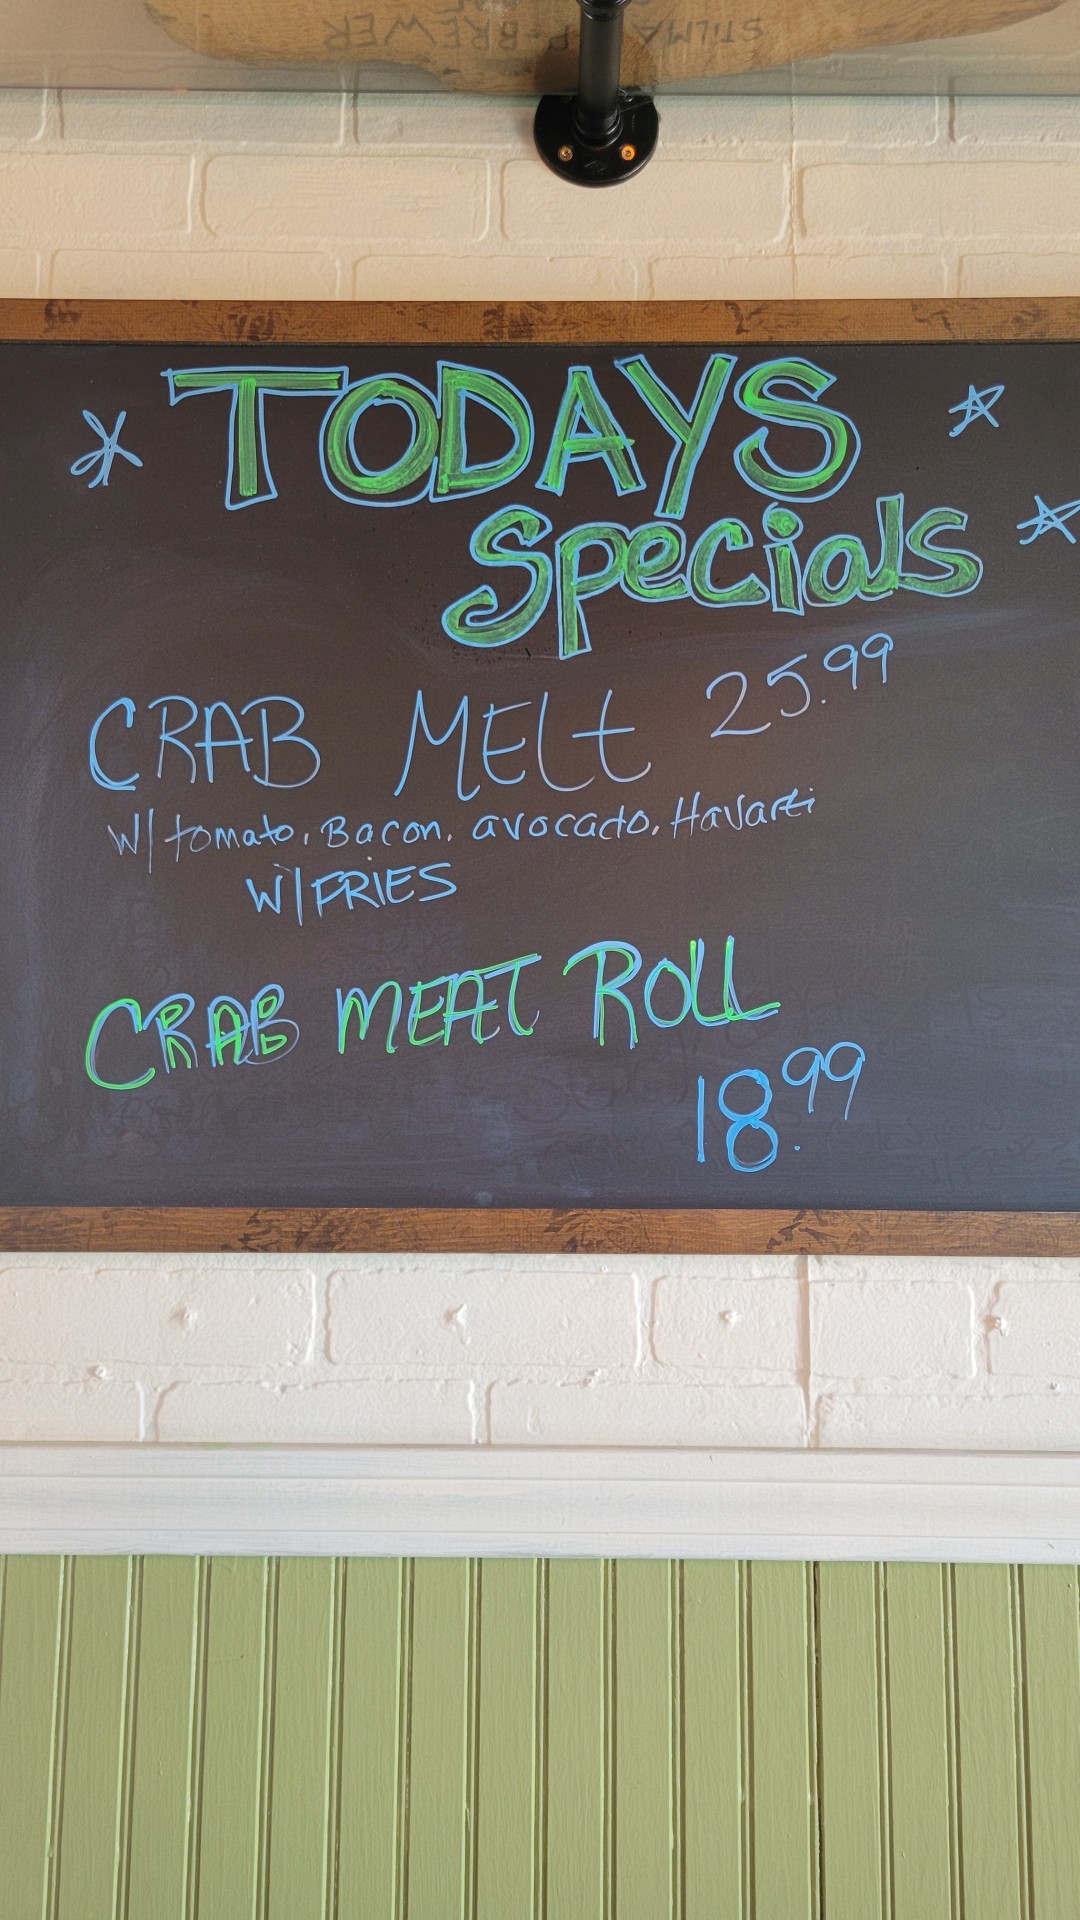 TODAYS
Specials
CRAB MELT 25.99
W/ tomato, Bacon, avocado, Havarti
W/ FRIES
CRAB MEAT ROLL
18.99